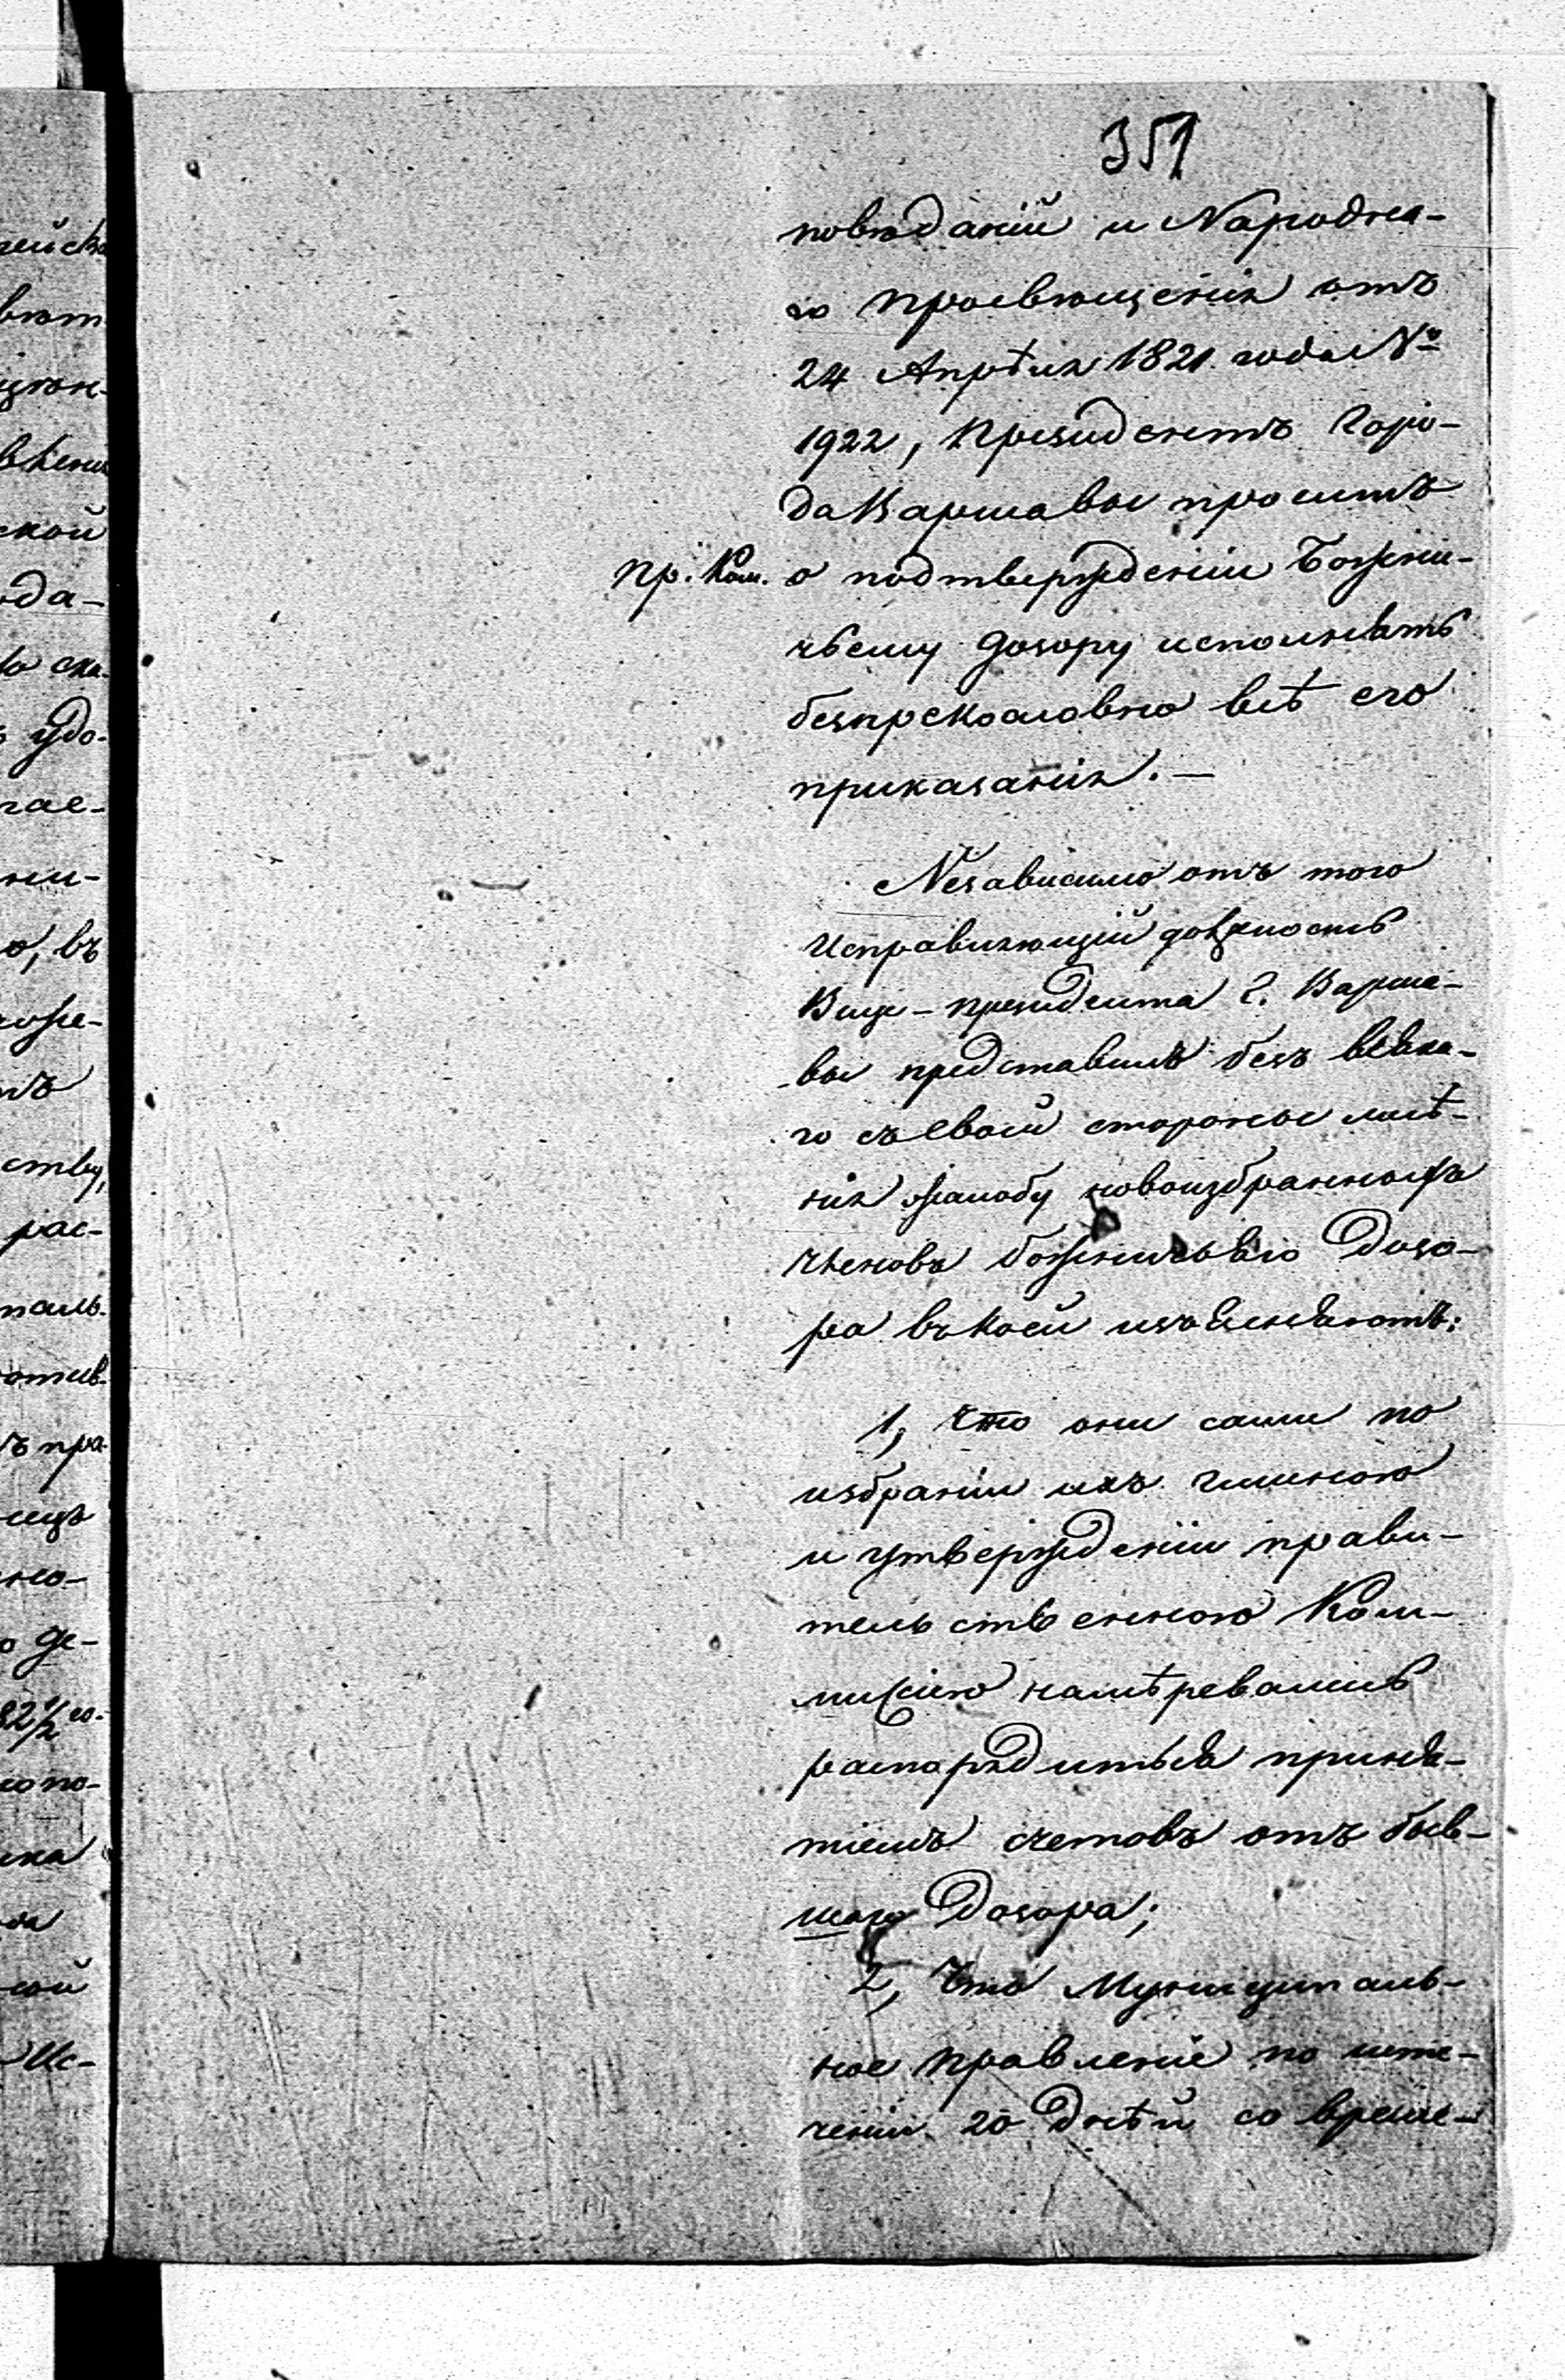 351
повѣданій и Народна-
го просвѣщенія отъ
24 Апрѣля 1821 года №
1922, Президентъ Горо-
да Варшавы проситъ
Пр. Ком. о подтвержденіи Божни-
чьему Дозору исполнять
безпрекословно всѣ его
приказанія. —
Независимо отъ того
Исправляющій должность
Вице-президента Г. Варша-
вы представилъ безъ всяка-
го съ своей стороны мнѣ-
нія жалобу новоизбранныхъ
членовъ божничьяго Дозо-
ра въ коей изъясняютъ:
1, Что они сами по
избраніи ихъ гминою
и утвержденіи прави-
тельственною Ком-
мисіею намѣревались
распорядиться приня-
тіемъ счетовъ отъ быв-
шаго Дозора;
2, Что Муниципаль-
ное Правленіе по исте-
ченіи 20 Днѣй со време-